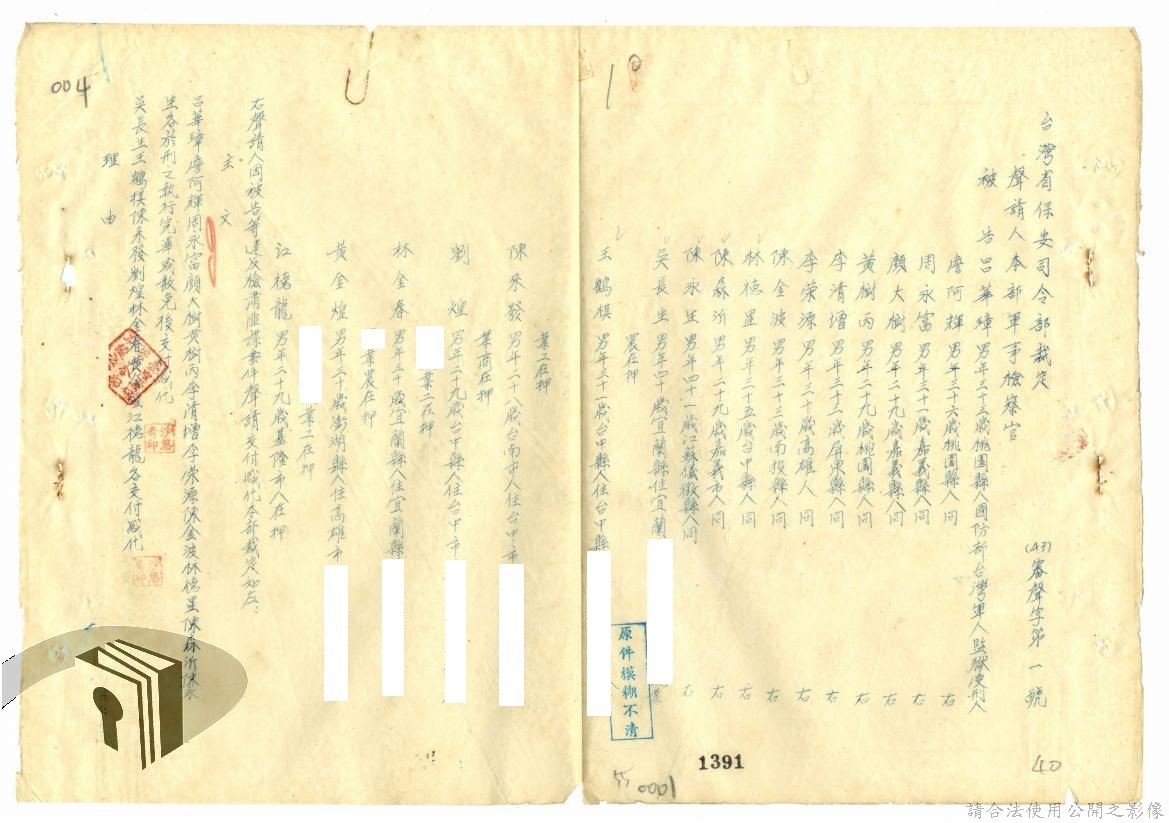 台灣省保安司令部裁定
(47)審聲字第一號
聲請人本部軍事檢察官
被告呂華璋男年三十三歲桃園縣人國防部台灣軍人監獄受刑人
詹阿輝男年三十六歲桃園縣人同右
周永富男年三十一歲嘉義縣人同右
顏大樹男年二十九歲嘉義縣人同右
黃樹丙男年二十九歲桃園縣人同右
李清增男年三十三歲屏東縣人同右
李荣源男年三十歲高雄人同右
陳金波男年三十三歲南投縣人同右
林德星男年三十五歲台中縣人同右
陳森沂男年二十九歲嘉義市人同右
陳永生男年四十一歲江蘇儀徵縣人同右
吳長生男年四十歲宜蘭縣住宜蘭
農在押
王鶴棋男年三十一歲台中縣人住台中縣
業工在押
陳來發男年二十八歲台南市人住台中市
業商在押
劉煌男年二十九歲台中縣人住台中市
業工在押
林金春男年三十歲宜蘭縣人住宜蘭縣
業農在押
黃金煌男年三十歲澎湖縣人住高雄市
業工在押
江德龍男年二十九歲基隆市人在押
右聲請人因被告等違反檢肅匪諜案件聲請交付感化本部裁定如左：
主文
呂華璋詹阿輝周永富顏大樹黃樹丙李清增李荣源陳金波林德星陳森沂陳永
生各於刑之執行完畢或赦免後交付感化
吳長生王鶴棋陳來發劉煌林金春黃金煌江德龍各交付感化
理由
004
10
40
1391
0001
原件模糊不清
請合法使用公開之影像